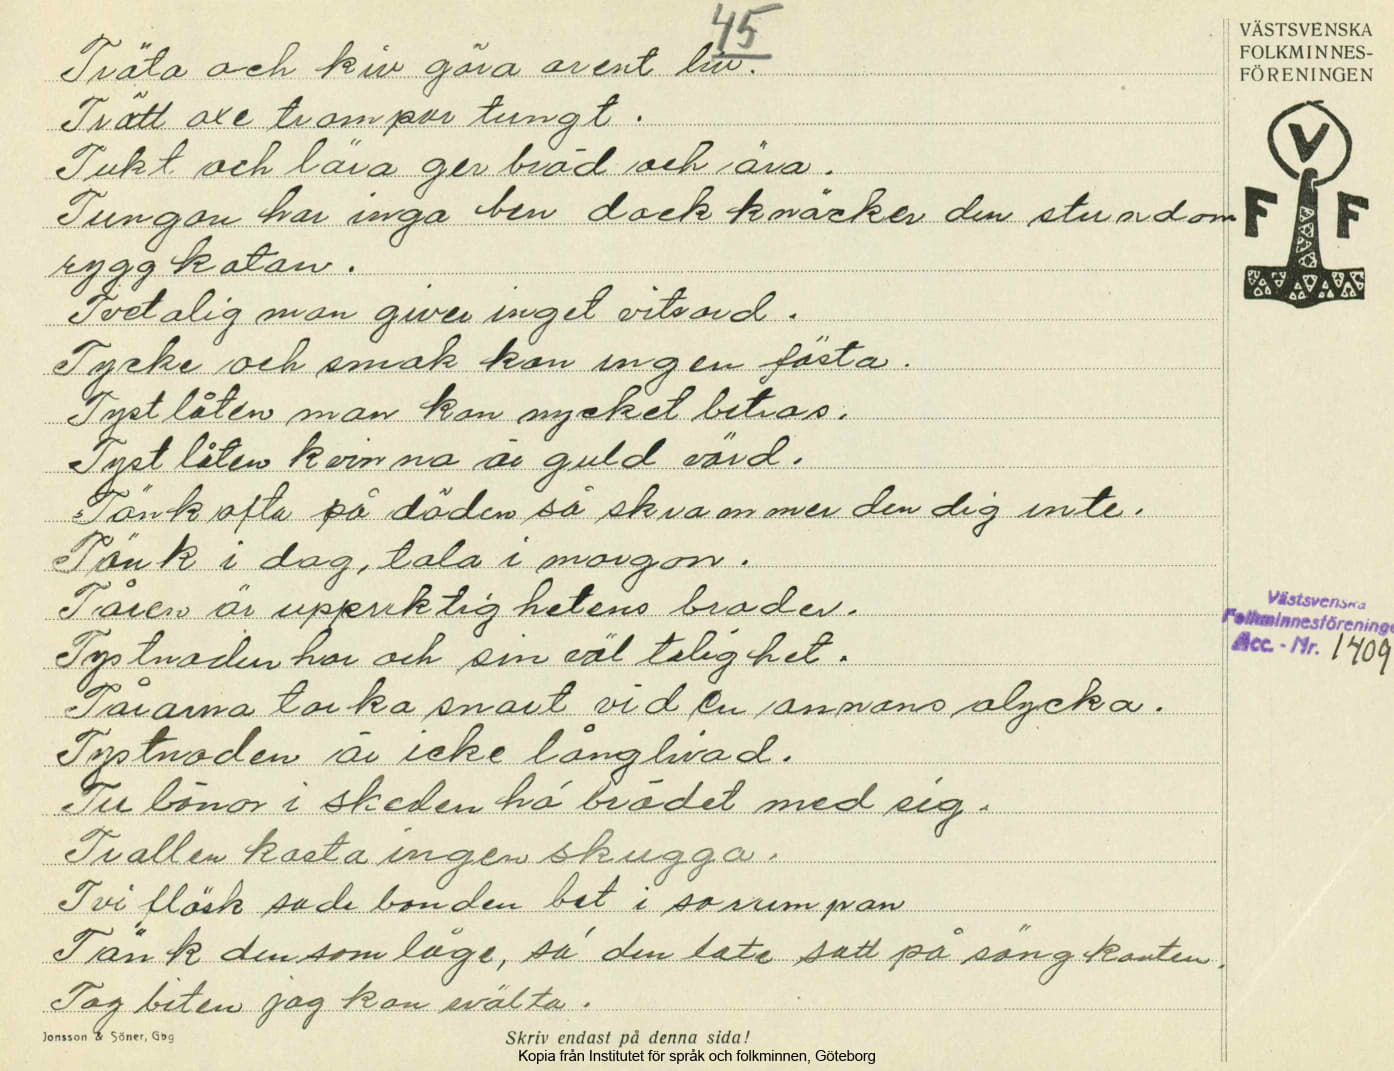 45
VÄSTSVENSKA
FOLKMINNES-
FÖRENINGEN
V
F F
Träta och kiv göra orent liv.
Trött oxe trampar tungt.
Tukt och lära ger bröd och ära.
Tungan har inga ben dock knäcker den stundom
ryggkotan.
Tvetalig man giver inget vitsord.
Tycke och smak kan ingen fästa.
Tystlåten man kan mycket betros.
Tystlåten kvinna är guld värd.
Tänk ofta på döden så skrammer den dig inte.
Tänk i dag, tala i morgon.
Tåren är uppriktighetens broder.
Tystnaden har och sin vältalighet.
Tårarna torka snart vid en annans olycka.
Tystnaden är icke långlivad.
Tu bönor i skeden há brödet med sig.
Trallen kasta ingen skugga.
Tvi fläsk sade bonden bet i sorumpan
Tänk den som låge, sá den late satt på sängkanten.
Tag biten jag kan svälta.
Västsvenska
Folkminnesföreningen
Acc. - Nr. 1409
Jonsson & Söner, Gbg
Skriv endast på denna sida!
Kopia från Institutet för språk och folkminnen, Göteborg